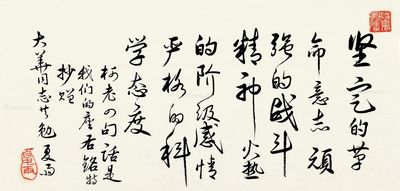 坚定的革
命意志顽
强的战斗
精神火热
的阶级感情
严格的科
学态度
柯老四句话是
我们的座右铭特
抄赠
大华同志共勉 夏雨